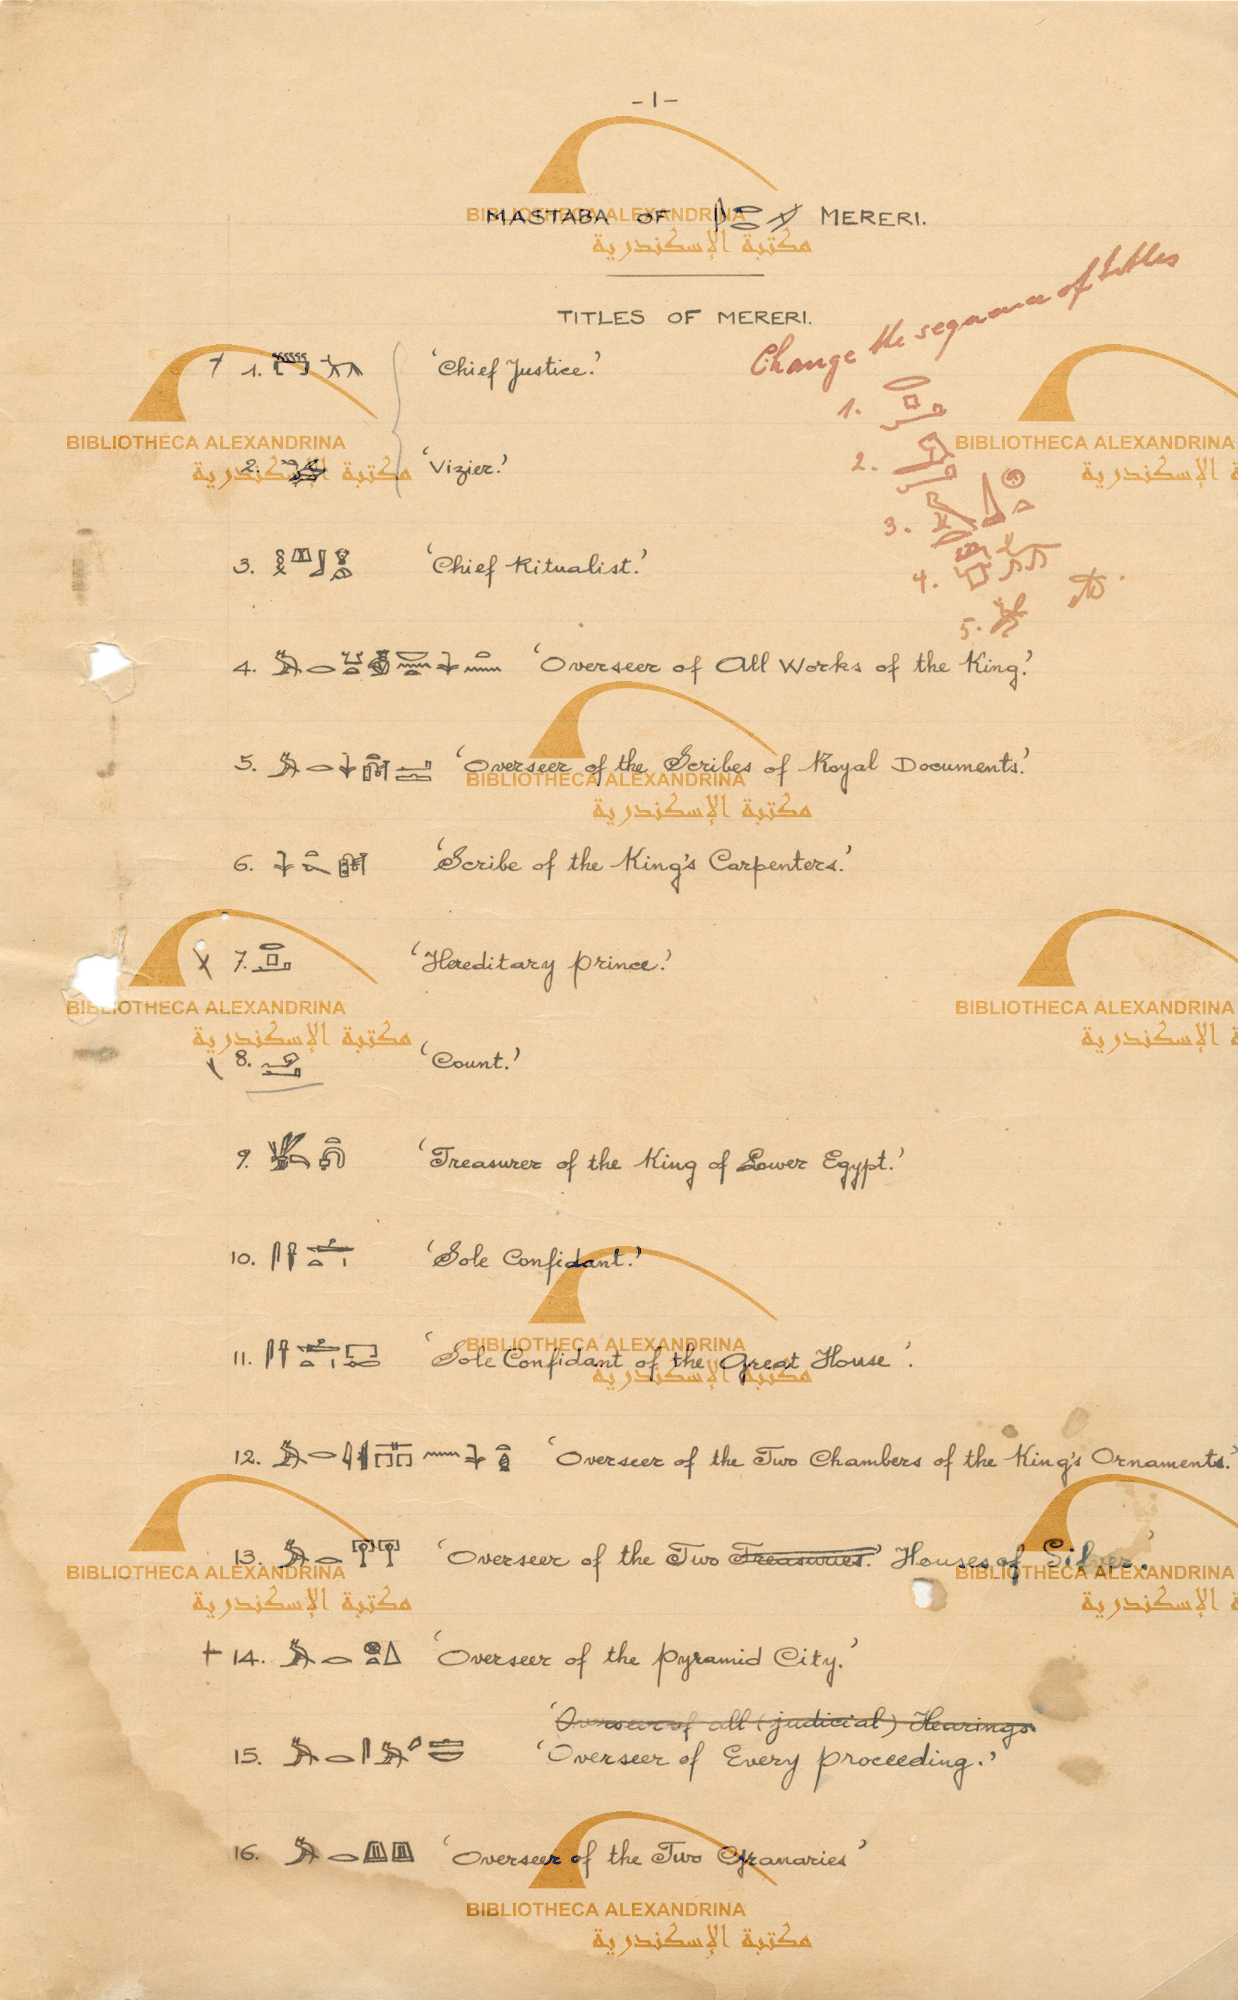 -1-
MASTABA OF MERERI.
TITLES OF MERERI.
Change the sequence of titles
1.
2.
3.
4.
5.
1. 'Chief Justice.'
2. 'Vizier.'
3. 'Chief Ritualist.'
4. 'Overseer of All Works of the King.'
5. 'Overseer of the Scribes of Royal Documents.'
6. 'Scribe of the King's Carpenters.'
7. 'Hereditary Prince.'
8. 'Count.'
9. 'Treasurer of the King of Lower Egypt.'
10. 'Sole Confidant.'
11. 'Sole Confidant of the Great House'.
12. 'Overseer of the Two Chambers of the King's Ornaments.'
13. 'Overseer of the Two Treasuries.' Houses of Silver.'
14. 'Overseer of the Pyramid City.'
'Overseer of all (judicial) Hearings.
15. 'Overseer of Every Proceeding.'
16. 'Overseer of the Two Granaries'
BIBLIOTHECA ALEXANDRINA
مكتبة الإسكندرية